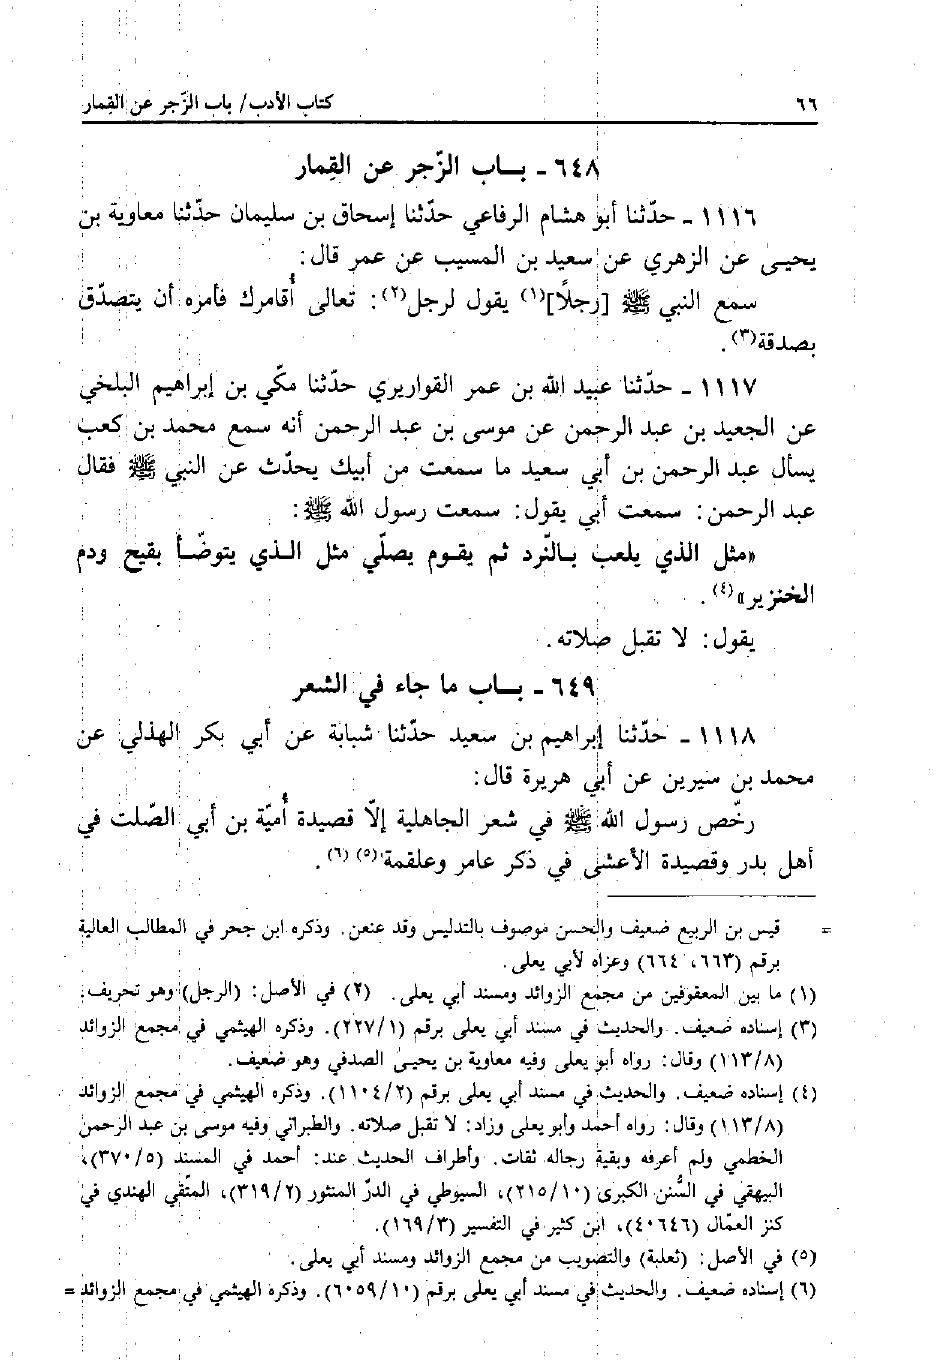 ٦٦
كتاب الأدب/ باب الزّجر عن القمار
٦٤٨ - بـاب الزّجر عن القِمار
١١١٦ - حدّثنا أبو هشام الرفاعي حدّثنا إسحاق بن سليمان حدّثنا معاوية بن
يحيىٰ عن الزهري عن سعيد بن المسيب عن عمر قال:
سمع النبي ﷺ [رجلًا](١) يقول لرجل(٢): تعالى أُقامرك فأمره أن يتصدّق
بصدقة(٣).
١١١٧ - حدّثنا عبيد الله بن عمر القواريري حدّثنا مكّي بن إبراهيم البلخي
عن الجعيد بن عبد الرحمن عن موسى بن عبد الرحمن أنه سمع محمد بن كعب
يسأل عبد الرحمن بن أبي سعيد ما سمعت من أبيك يحدّث عن النبي ﷺ فقال
عبد الرحمن: سمعت أبي يقول: سمعت رسول الله ﷺ:
«مثل الذي يلعب بـالنّرد ثم يقـوم يصلّي مثل الـذي يتوضّـأ بقيح ودم
الخنزير»(٤).
يقول: لا تقبل صلاته.
٦٤٩ - بـاب ما جاء في الشعر
١١١٨ - حدّثنا إبراهيم بن سعيد حدّثنا شبابة عن أبي بكر الهذلي عن
محمد بن سيرين عن أبي هريرة قال:
رخّص رسول الله ﷺ في شعر الجاهلية إلّا قصيدة أُميّة بن أبي الصّلت في
أهل بدر وقصيدة الأعشى في ذكر عامر وعلقمة(٥) (٦).
= قيس بن الربيع ضعيف والحسن موصوف بالتدليس وقد عنعن. وذكره ابن حجر في المطالب العالية
برقم (٦٦٣، ٦٦٤) وعزاه لأبي يعلى.
(١) ما بين المعقوفين من مجمع الزوائد ومسند أبي يعلى. (٢) في الأصل: (الرجل) وهو تحريف.
(٣) إسناده ضعيف. والحديث في مسند أبي يعلى برقم (٢٢٧/١). وذكره الهيثمي في مجمع الزوائد
(١١٣/٨) وقال: رواه أبو يعلى وفيه معاوية بن يحيىٰ الصدفي وهو ضعيف.
(٤) إسناده ضعيف. والحديث في مسند أبي يعلى برقم (١١٠٤/٢). وذكره الهيثمي في مجمع الزوائد
(١١٣/٨) وقال: رواه أحمد وأبو يعلى وزاد: لا تقبل صلاته. والطبراني وفيه موسى بن عبد الرحمن
الخطمي ولم أعرفه وبقية رجاله ثقات. وأطراف الحديث عند: أحمد في المسند (٣٧٠/٥)،
البيهقي في السُّنن الكبرى (٢١٥/١٠)، السيوطي في الدرّ المنثور (٣١٩/٢)، المتّقي الهندي في
كنز العمّال (٤٠٦٤٦)، ابن كثير في التفسير (١٦٩/٣).
(٥) في الأصل: (ثعلبة) والتصويب من مجمع الزوائد ومسند أبي يعلى.
(٦) إسناده ضعيف. والحديث في مسند أبي يعلى برقم (٦٠٥٩/١٠). وذكره الهيثمي في مجمع الزوائد =